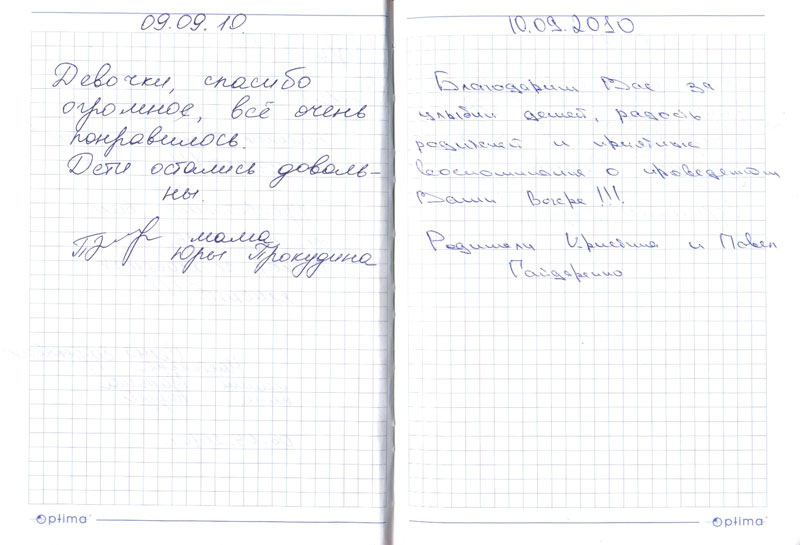 09.09.10.
Девочки, спасибо
огромное, всё очень
понравилось.
Дети остались доволь-
ны.
мама
Юры Прокудина
optima
10.09.2010
Благодарим Вас за
улыбки детей, радость
родителей и приятные
воспоминания о проведённом
Вами вечере!!!
Родители Кристина и Павел
Гайдаренко
optima